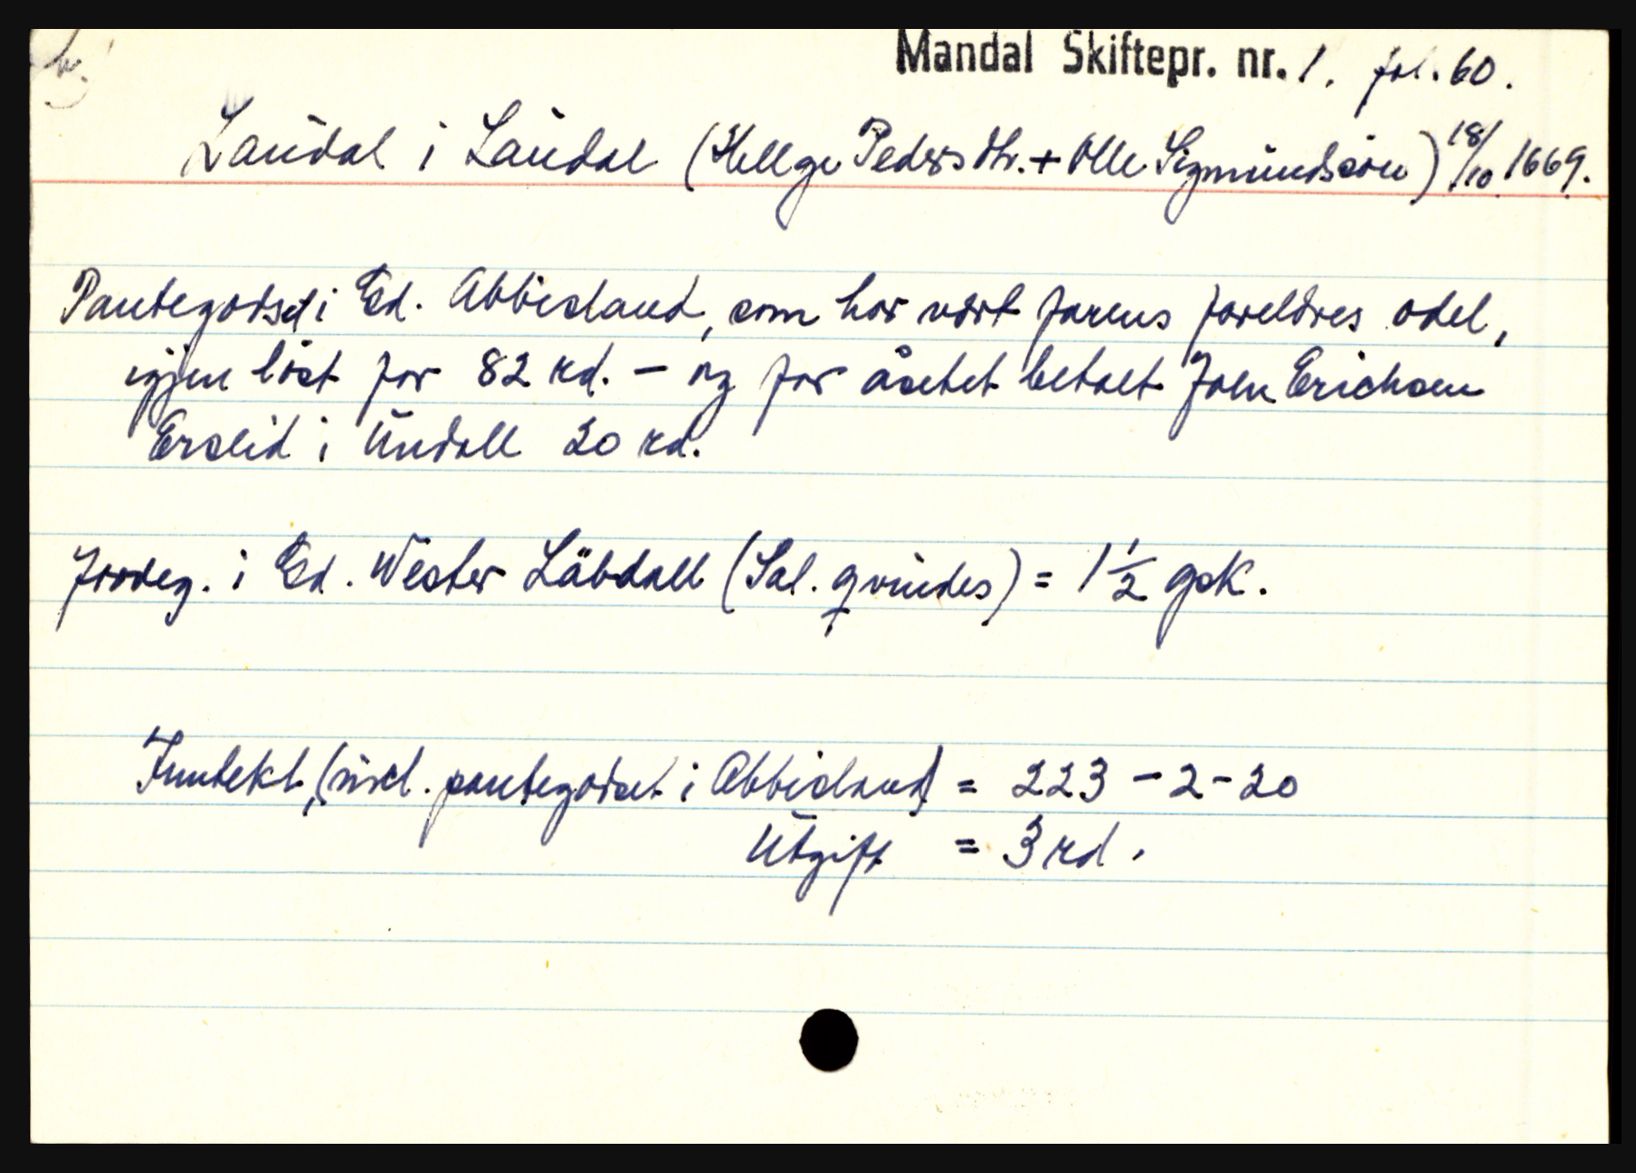 Mandal Skiftepr. nr. 1. fol. 60.
Laudal i Laudal (Hellge Pedersdtr. + Olle Sigmundsøn) 18/10 1669.
Pantegodset i Ed. Abbisland, som har vært farens foreldres odel,
igjen løst for 82 rd. – og for åsetet betalt John Erichsen
Erslid i Undall 20 rd.
Jordeg. i Ed. Wester Låbdall (Sal. qvindes) = 1 1/2 gsk.
Inntekt, (incl. pantegodset i Abbisland) = 223 - 2 - 20
Utgift = 3 rd.